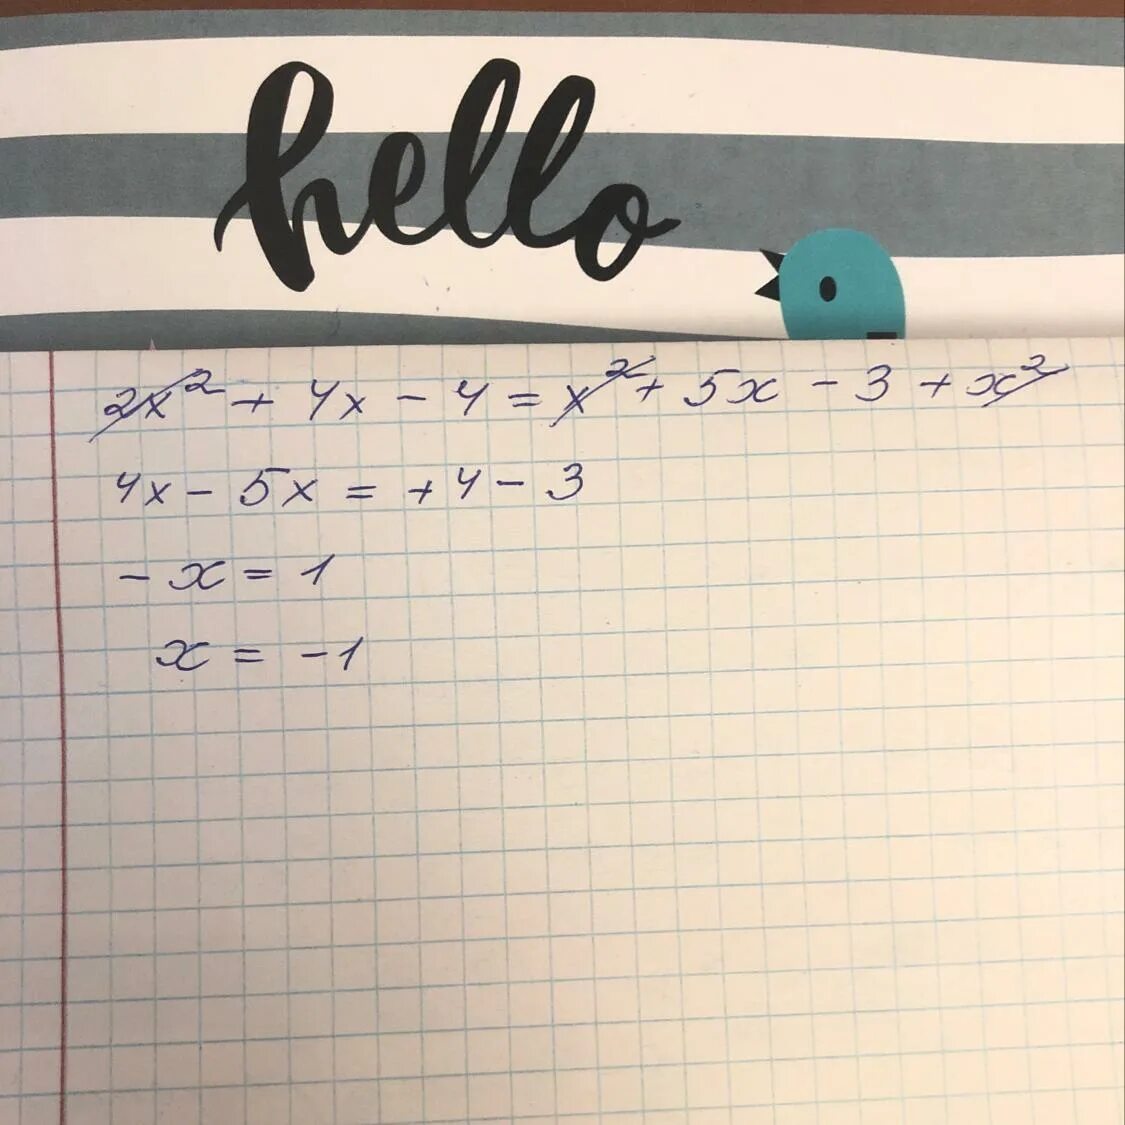 hello
2x² + 4x - 4 = x² + 5x - 3 + x²
4x - 5x = +4 - 3
- x = 1
x = -1